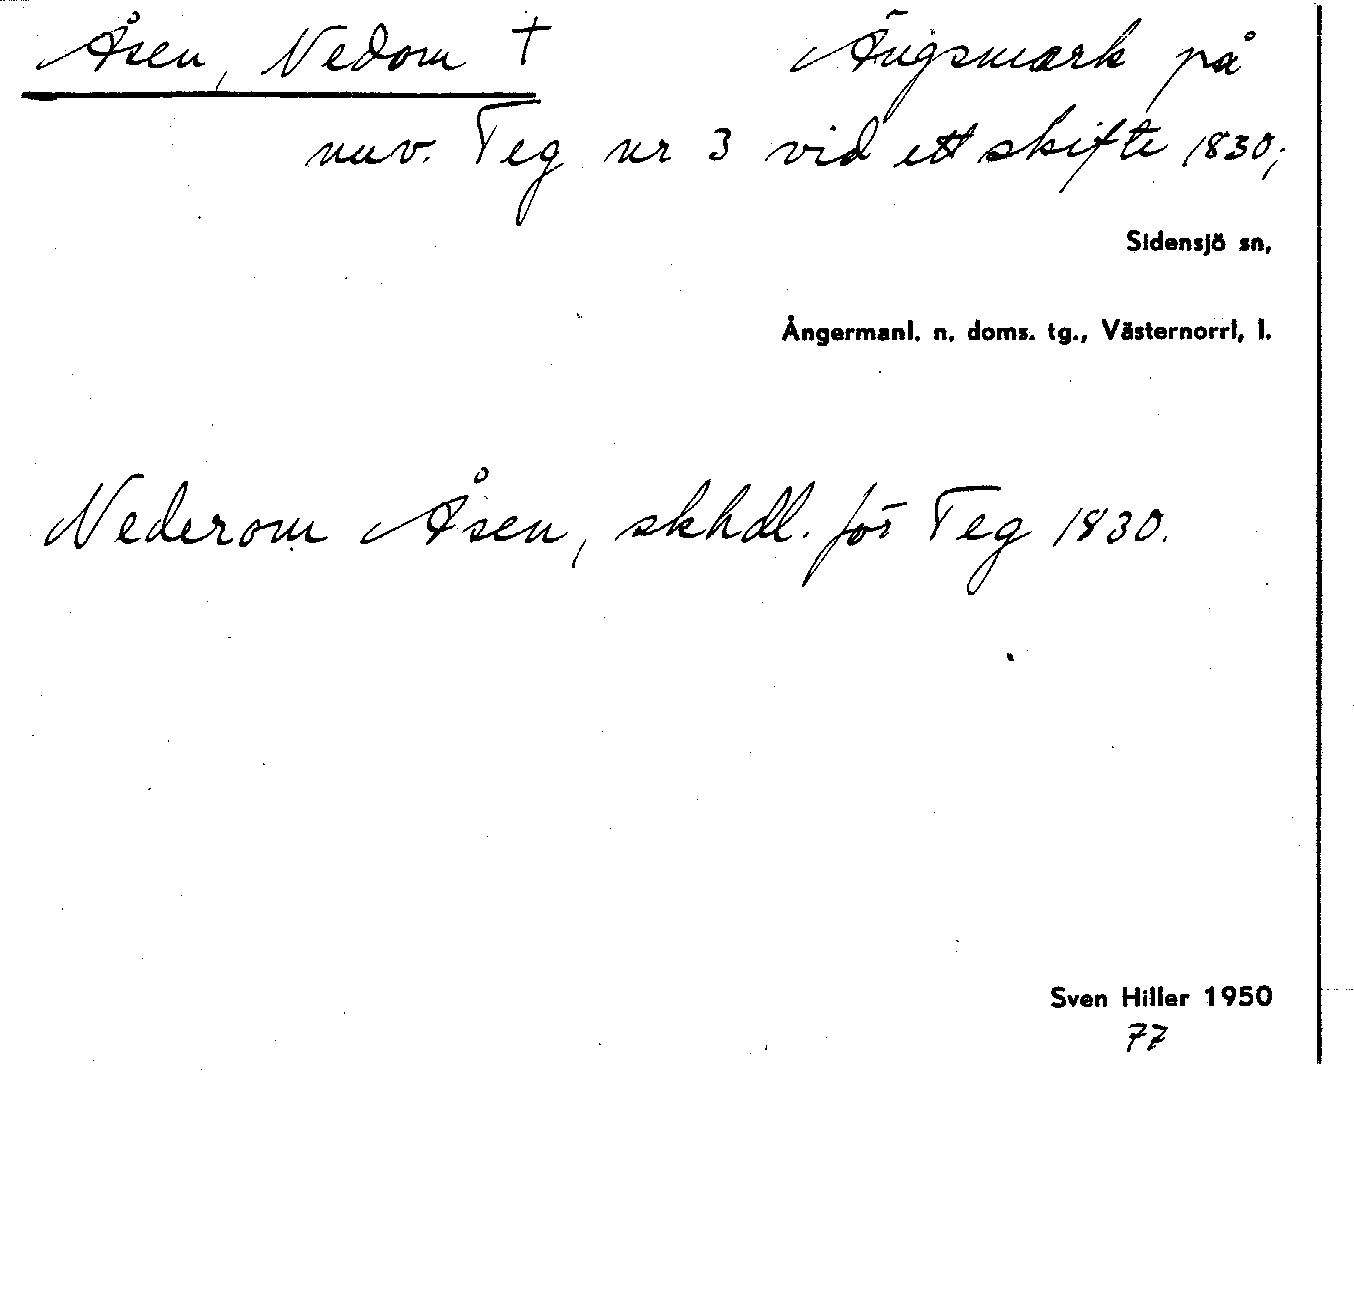 Åsen, Nedom † Ängsmark på
nuv. Teg nr 3 vid ett skifte 1830;
Sidensjö sn,
Ångermanl. n. doms. tg., Västernorrl, l.
Nederom Åsen, skhdl. för Teg 1830.
Sven Hiller 1950
77